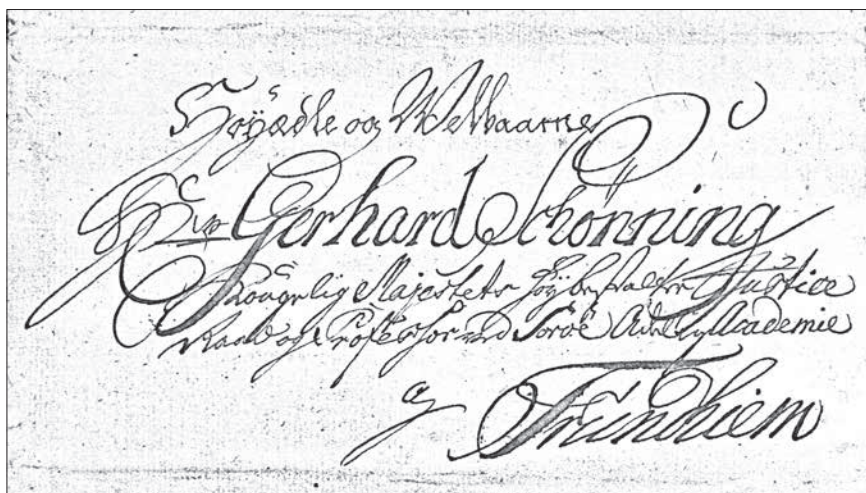 Høÿædle og Welbaarne
Hr Gerhard Schønning
Kongelig Majestets høÿbestalter Justice
Raad og Professor ved Soroë Adelig Academie
a Trundhiem